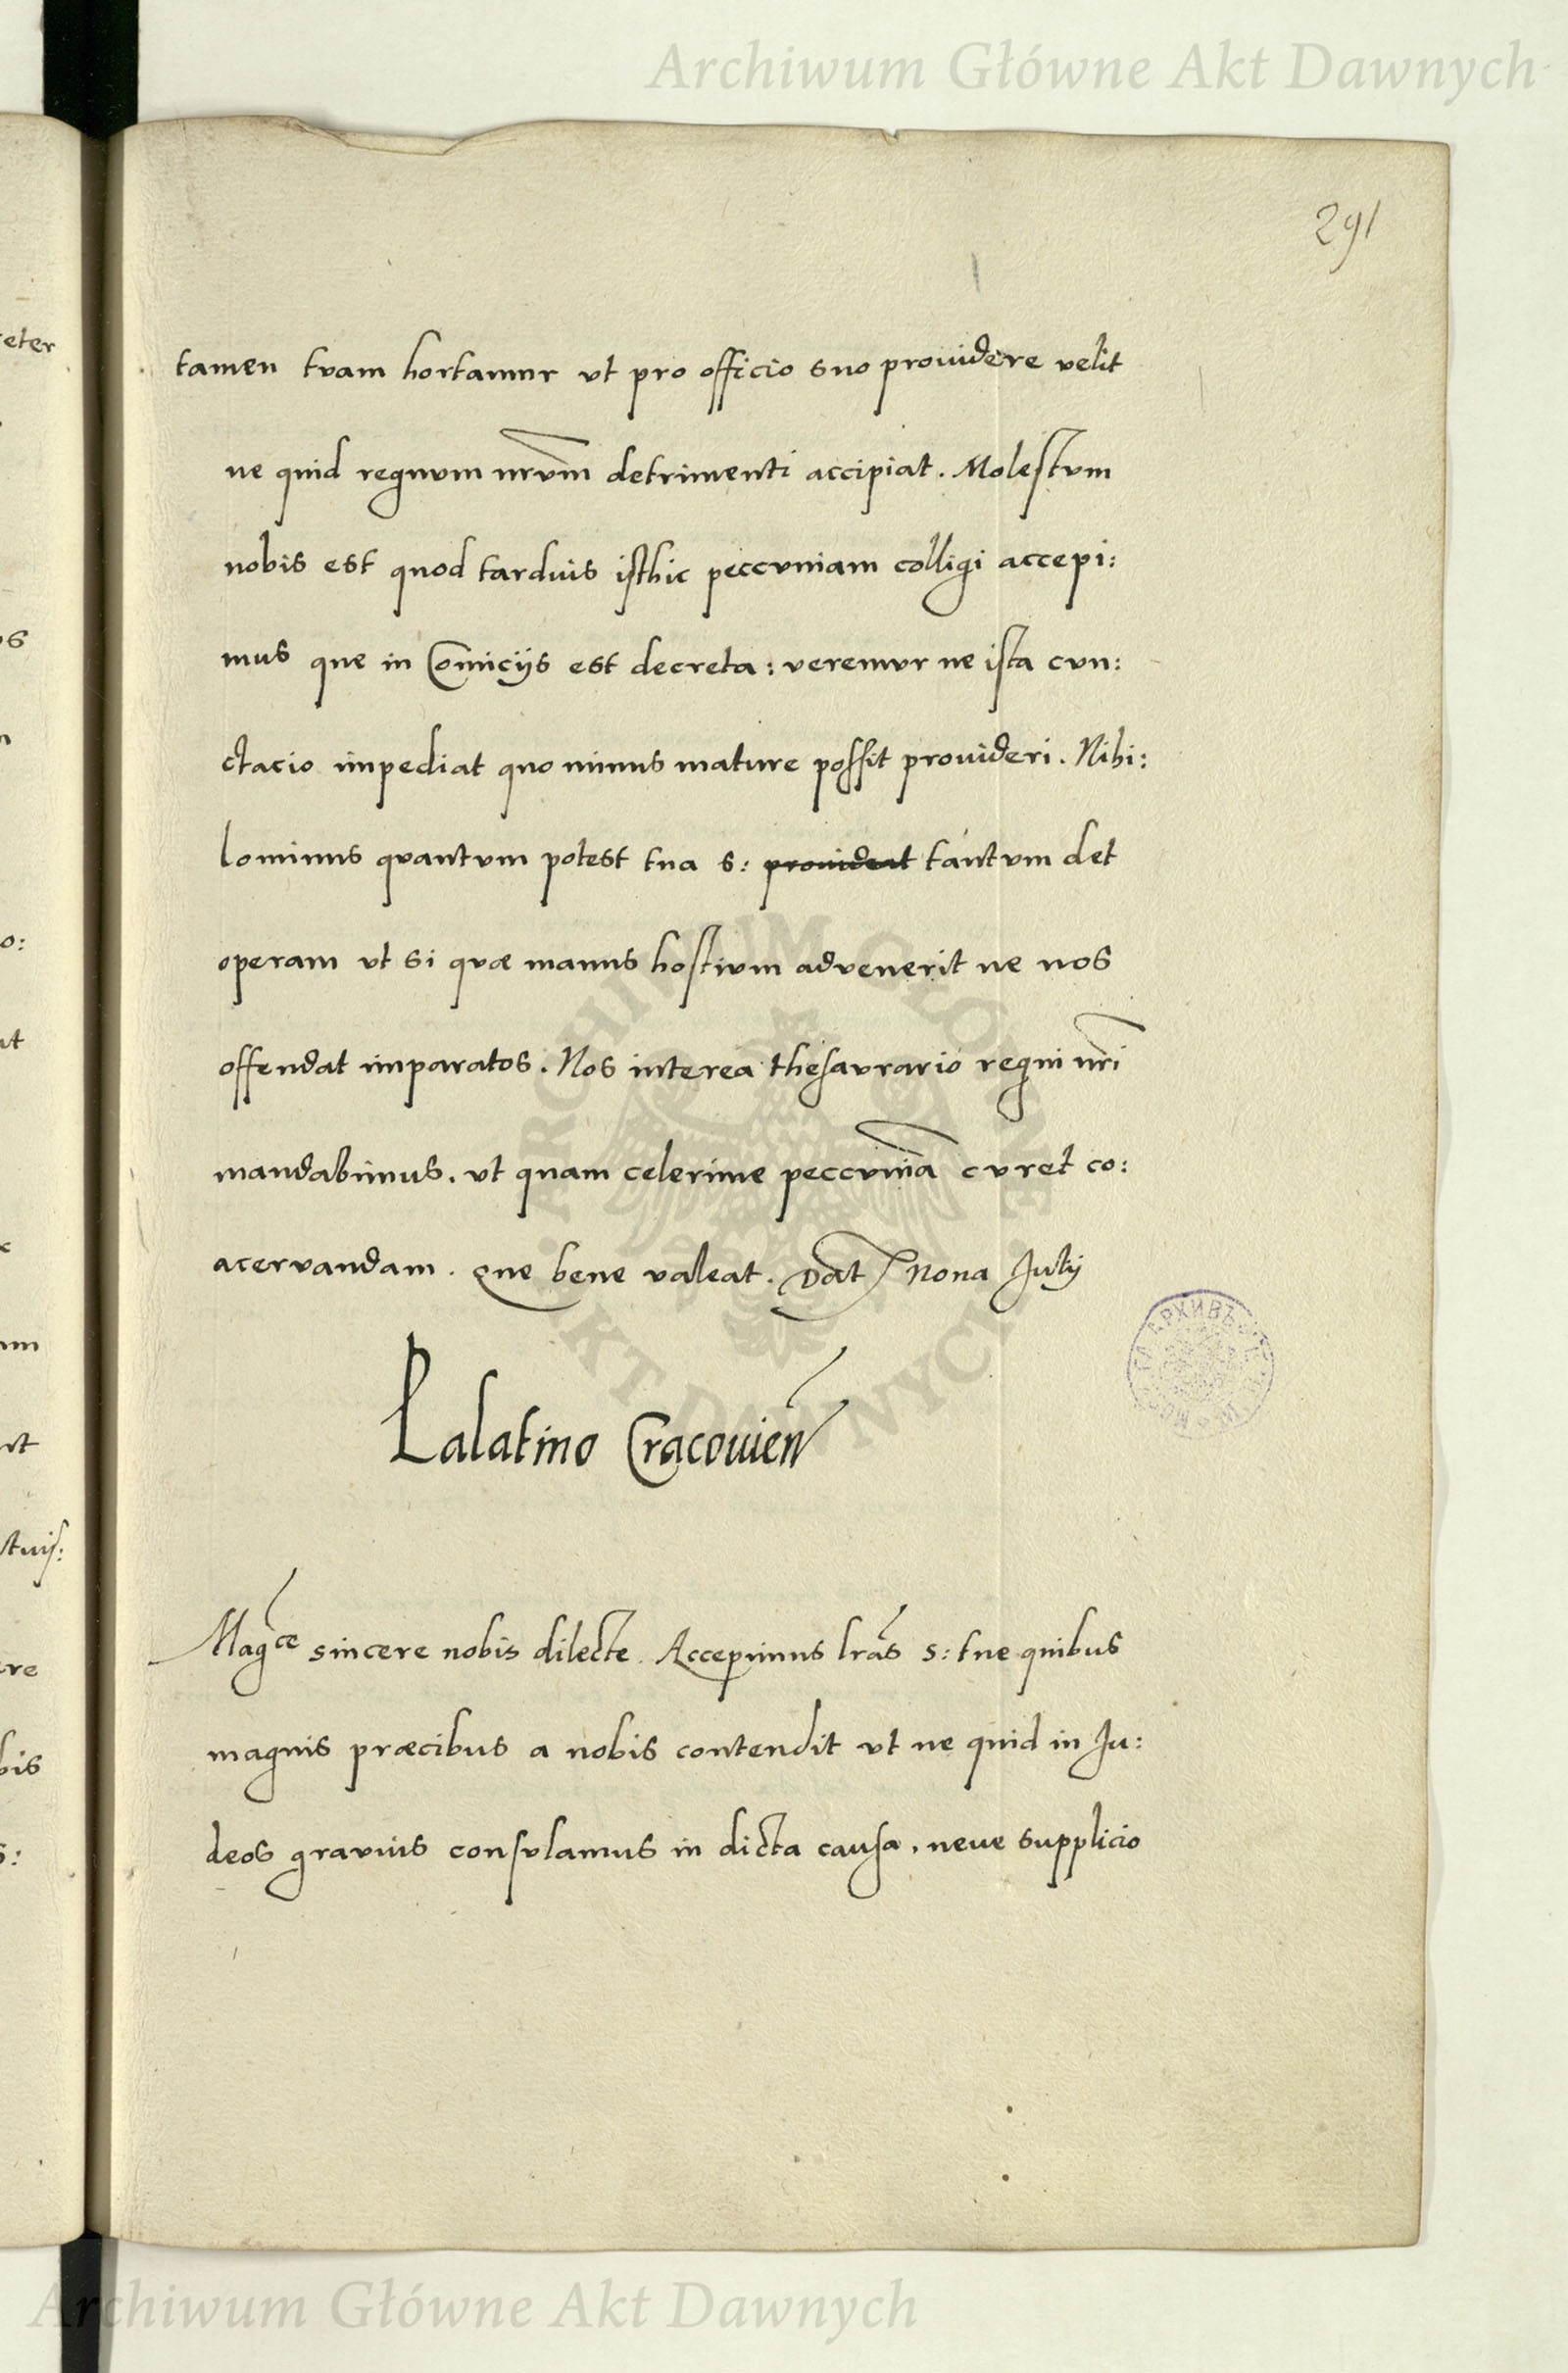 Archiwum Główne Akt Dawnych
291
tamen tvam hortamur vt pro officio suo prouidere velit
ne quid regnvm nrvm detrimenti accipiat. Molestvm
nobis est quod tardvis isthic peccvniam colligi accepi:
mus que in Comicijs est decreta: veremvr ne ista cvn:
ctacio impediat quo minus mature possit prouideri. Nihi:
lominus qvantvm potest tua s: prouideat tantvm det
operam vt si qvæ manus hostivm advenerit ne nos
offendat imparatos. Nos interea thesavrario regni nri
mandabimus. vt quam celerime peccvnia cvret co:
acervandam. Que bene valeat. Dat Nona Julij
Palatino Cracouien
Magce sincere nobis dilecte. Accepimus lras s: tue quibus
magnis præcibus a nobis contendit vt ne quid in Ju:
deos gravius consvlamus in dicta causa. neue supplicio
ARCHIWUM GŁÓWNE AKT DAWNYCH
Archiwum Główne Akt Dawnych